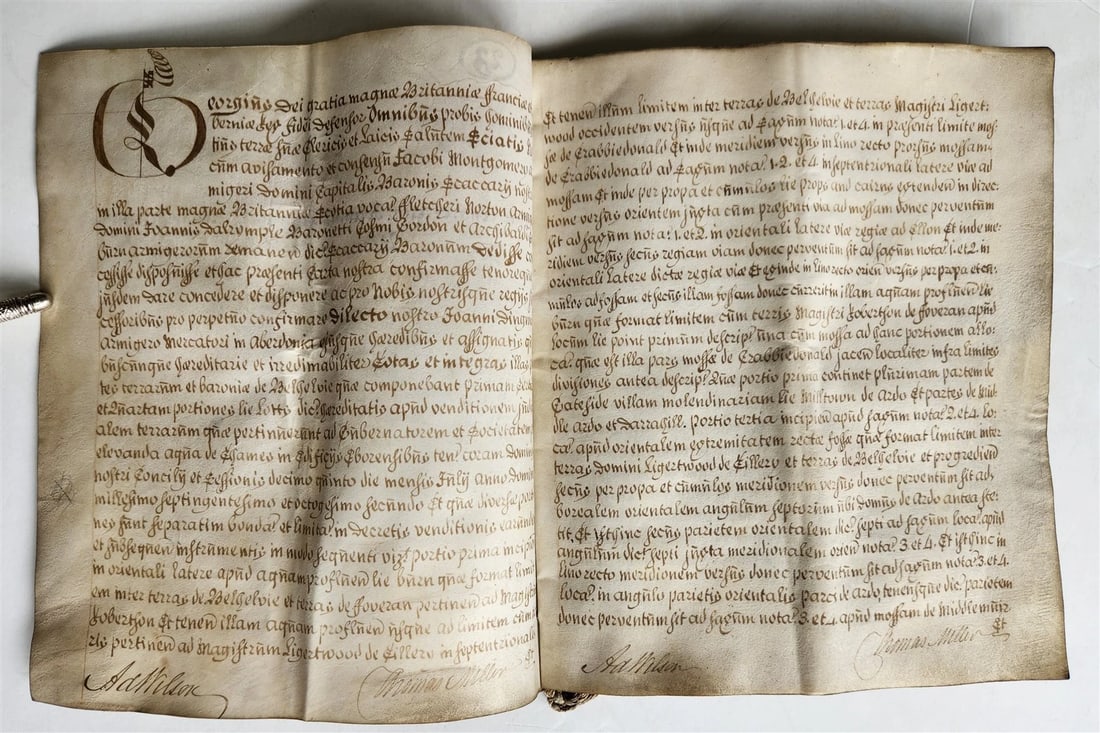 Georgius Dei gratia magnæ Britanniæ Franciæ et
berniæ Rex fidei defensor Omnibus probis hominibus
tius terræ suæ Clericis et Laicis Salutem Sciatis
cum avisamento et consensu Jacobi Montgomery
migeri domini Capitalis Baronis Scaccarij nostri
in illa parte magnæ Britanniæ Scotia vocat Fletcheri Norton Armi
domini Joannis dalrymple Baronetti Cosmi Gordon et Archibaldi
burn armigerorum remanen dict Scaccarij Baronum Dedisse
cessisse disposuisse et hac presenti Carta nostra confirmasse tenoreque
jusdem dare concedere et disponere ac pro Nobis nostrisque regijs
cessoribus pro perpetuo confirmare Dilecto nostro Joanni Dingwall
Armigero Mercatori in Aberdonia ejusque hæredibus et assignatis
buscunque hæreditarie et irredimabiliter Totas et integras illas
tes terrarum et baroniæ de Belhelvie quæ componebant primam
et Quartam portiones lie Lotts dict hereditatis apud venditionem
alem terrarum quæ pertinuerunt ad Gubernatorem et Societatem
elevanda aqua de Thames in Ædificijs Eboren­sibus ten coram domini
nostri Concilij et Sessionis decimo quinto die mensis Julij Anno domini
millesimo septingentesimo et octogesimo secundo Et quæ diversæ portio
nes sunt separatim bondat et limitat in decretis venditionis earund
et subsequen instrumentis in modo sequenti vizt Portio prima incipien
in orientali latere apud aquam profluen lie burn quæ format limit
em inter terras de Belhelvie et terras de Foveran pertinen ad Magistrum
Robertson Et tenen illam aquam profluen usque ad limitem cum
ris pertinen ad Magistrum Ligertwood de Tillery in septentrionali
Et
Ad Wilson
Thomas Miller
Et tenen illum limitem inter terras de Belhelvie et terras Magistri Ligert:
wood occidentem versus usque ad Saxum notat 1. et 4. in presenti limite mos
sæ de Crabbiedonald Et inde meridiem versus in lino recto prorsus mossam
de Crabbiedonald ad Saxum notat 1. 2. et 4. in septentrionali latere viæ ad
mossam Et inde per propa et cumulos lie props and cairns extenden in direc
tione versus orientem juxta cum præsenti via ad mossam donec perventum
sit ad saxum notat 1. et 2. in orientali latere viæ regiæ ad Ellon Et inde me
ridiem versus secus regiam viam donec perventum sit ad saxum notat 1. et 2. in
orientali latere dictæ regiæ viæ Et exinde in lino recto orien versus per propa et cu
mulos ad fossam et secus illam fossam donec currerit in illam aquam profluen lie
burn quæ format limitem cum terris Magistri Robertson de Foveran apud
locum lie point primum descript una cum mossa ad hanc portionem allo
cat quæ est illa pars mossæ de Crabbiedonald jacen localiter infra limites
divisiones antea descript Quæ portio prima continet plurimam partem de
Gateside villam molendinariam lie Milltown de Ardo Et partes de Mid
dle Ardo et darrahill. Portio tertia incipien apud saxum notat 2. et 4. lo
cat apud orientalem extremitatem rectæ fossæ quæ format limitem inter
terras domini Ligertwood de Tillery et terras de Belhelvie et progredien
secus per propa et cumulos meridionem versus donec perventum sit ad
borealem orientalem angulum septorum ubi domus de Ardo antea ste
tit. Et istinc secus parietem orientalem dict septi ad saxum locat apud
angulum dict septi juxta meridionalem orien notat 3. et 4. Et istinc in
lino recto meridionem versus donec perventum sit ad saxum notat 3. et 4.
locat in angulo parietis orientalis Parci de Ardo, tenensque dict parietem
donec perventum sit ad saxum notat 3. et 4. apud mossam de Middle muir
Et
Ad Wilson
Thomas Miller